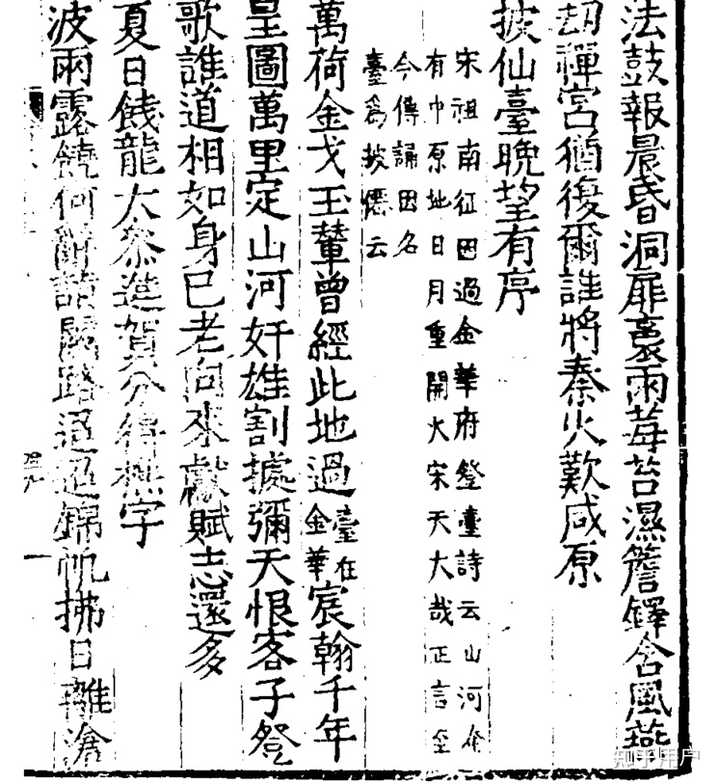 法鼓報晨昏洞扉裏雨莓苔濕簷鐸含風燕
劫禪宮猶復爾誰將秦火歎咸原
披仙臺晚望有序
宋祖南征因過金華府登臺詩云山河奄
有中原地日月重開火宋天大哉正言至
今傳誦因名
臺為披僊云
萬荷金戈玉輦曾經此地過臺在金華宸翰千年
皇圖萬里定山河奸雄割據彌天恨客子登
歌誰道相如身已老向來獻賦志還多
夏日餞龍大參進賀分得字
波雨露饒何路迢迢錦帆拂日離滄
知乎用户